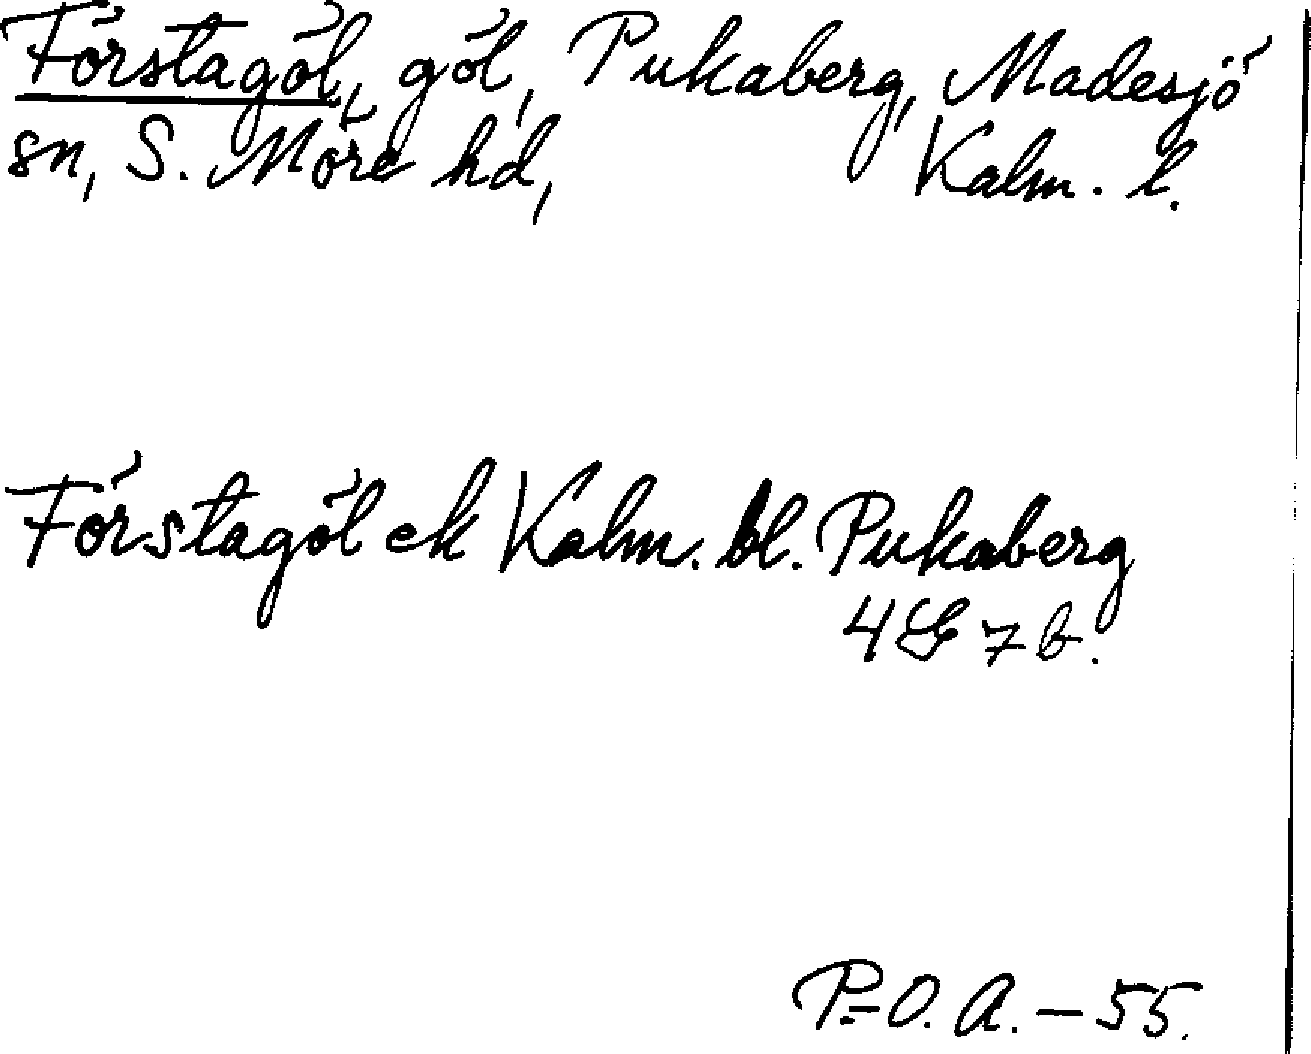 Förstagöl, göl, Pukaberg, Madesjö
sn, S. Möre hd, Kalm. l.
Förstagöl ek Kalm. bl. Pukaberg
4G7b.
P.-O. A. – 55.